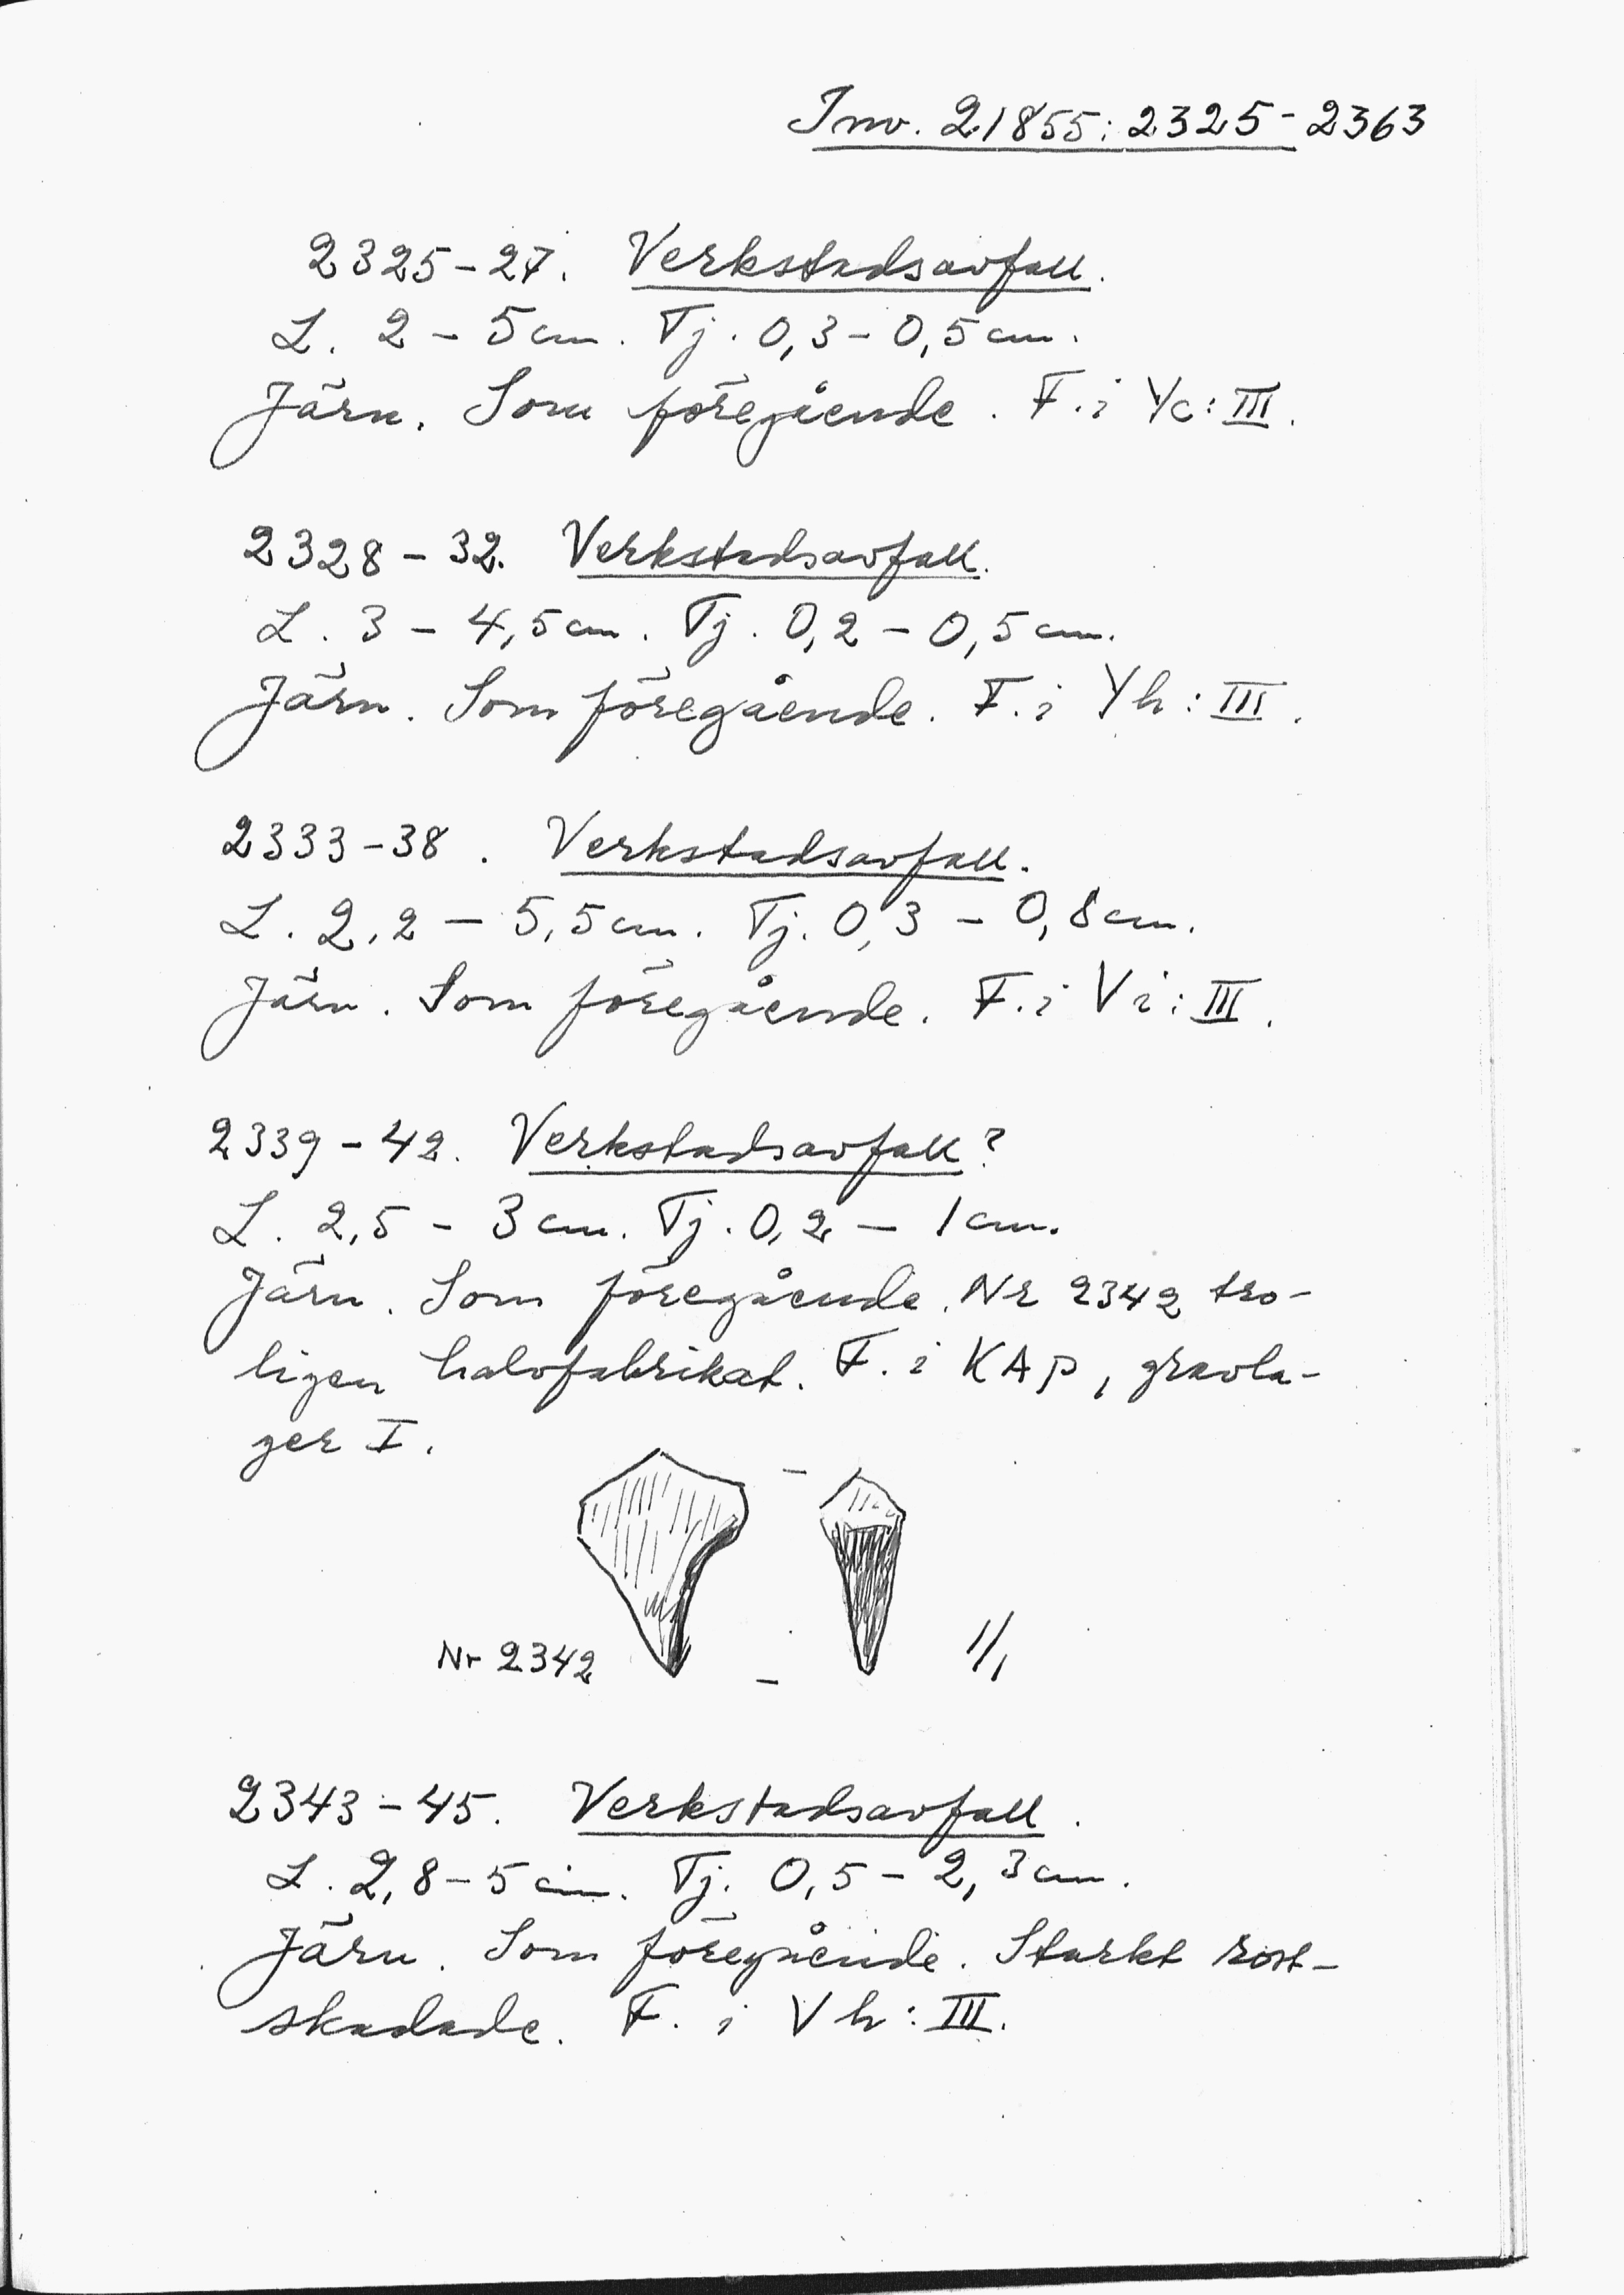 Inv. 21855:2325-2363
2325-27. Verkstadsavfall.
L. 2 - 5 cm. Tj. 0,3 - 0,5 cm.
Järn. Som föregående. F. i Yc: III.
2328 - 32. Verkstadsavfall.
L. 3 - 4,5 cm. Tj. 0,2 - 0,5 cm.
Järn. Som föregående. F. i Yh: III.
2333-38. Verkstadsavfall.
L. 2,2 - 5,5 cm. Tj. 0,3 - 0,8 cm.
Järn. Som föregående. F. i Vi: III.
2339 - 42. Verkstadsavfall?
L. 2,5 - 3 cm. Tj. 0,2 - 1 cm.
Järn. Som föregående. Nr 2342 tro-
ligen halvfabrikat. F. i KAP, gravla-
ger I.
Nr 2342
1/1
2343 - 45. Verkstadsavfall.
L. 2,8 - 5 cm. Tj. 0,5 - 2,3 cm.
Järn. Som föregående. Starkt rost-
skadade. F. i Vh: III.